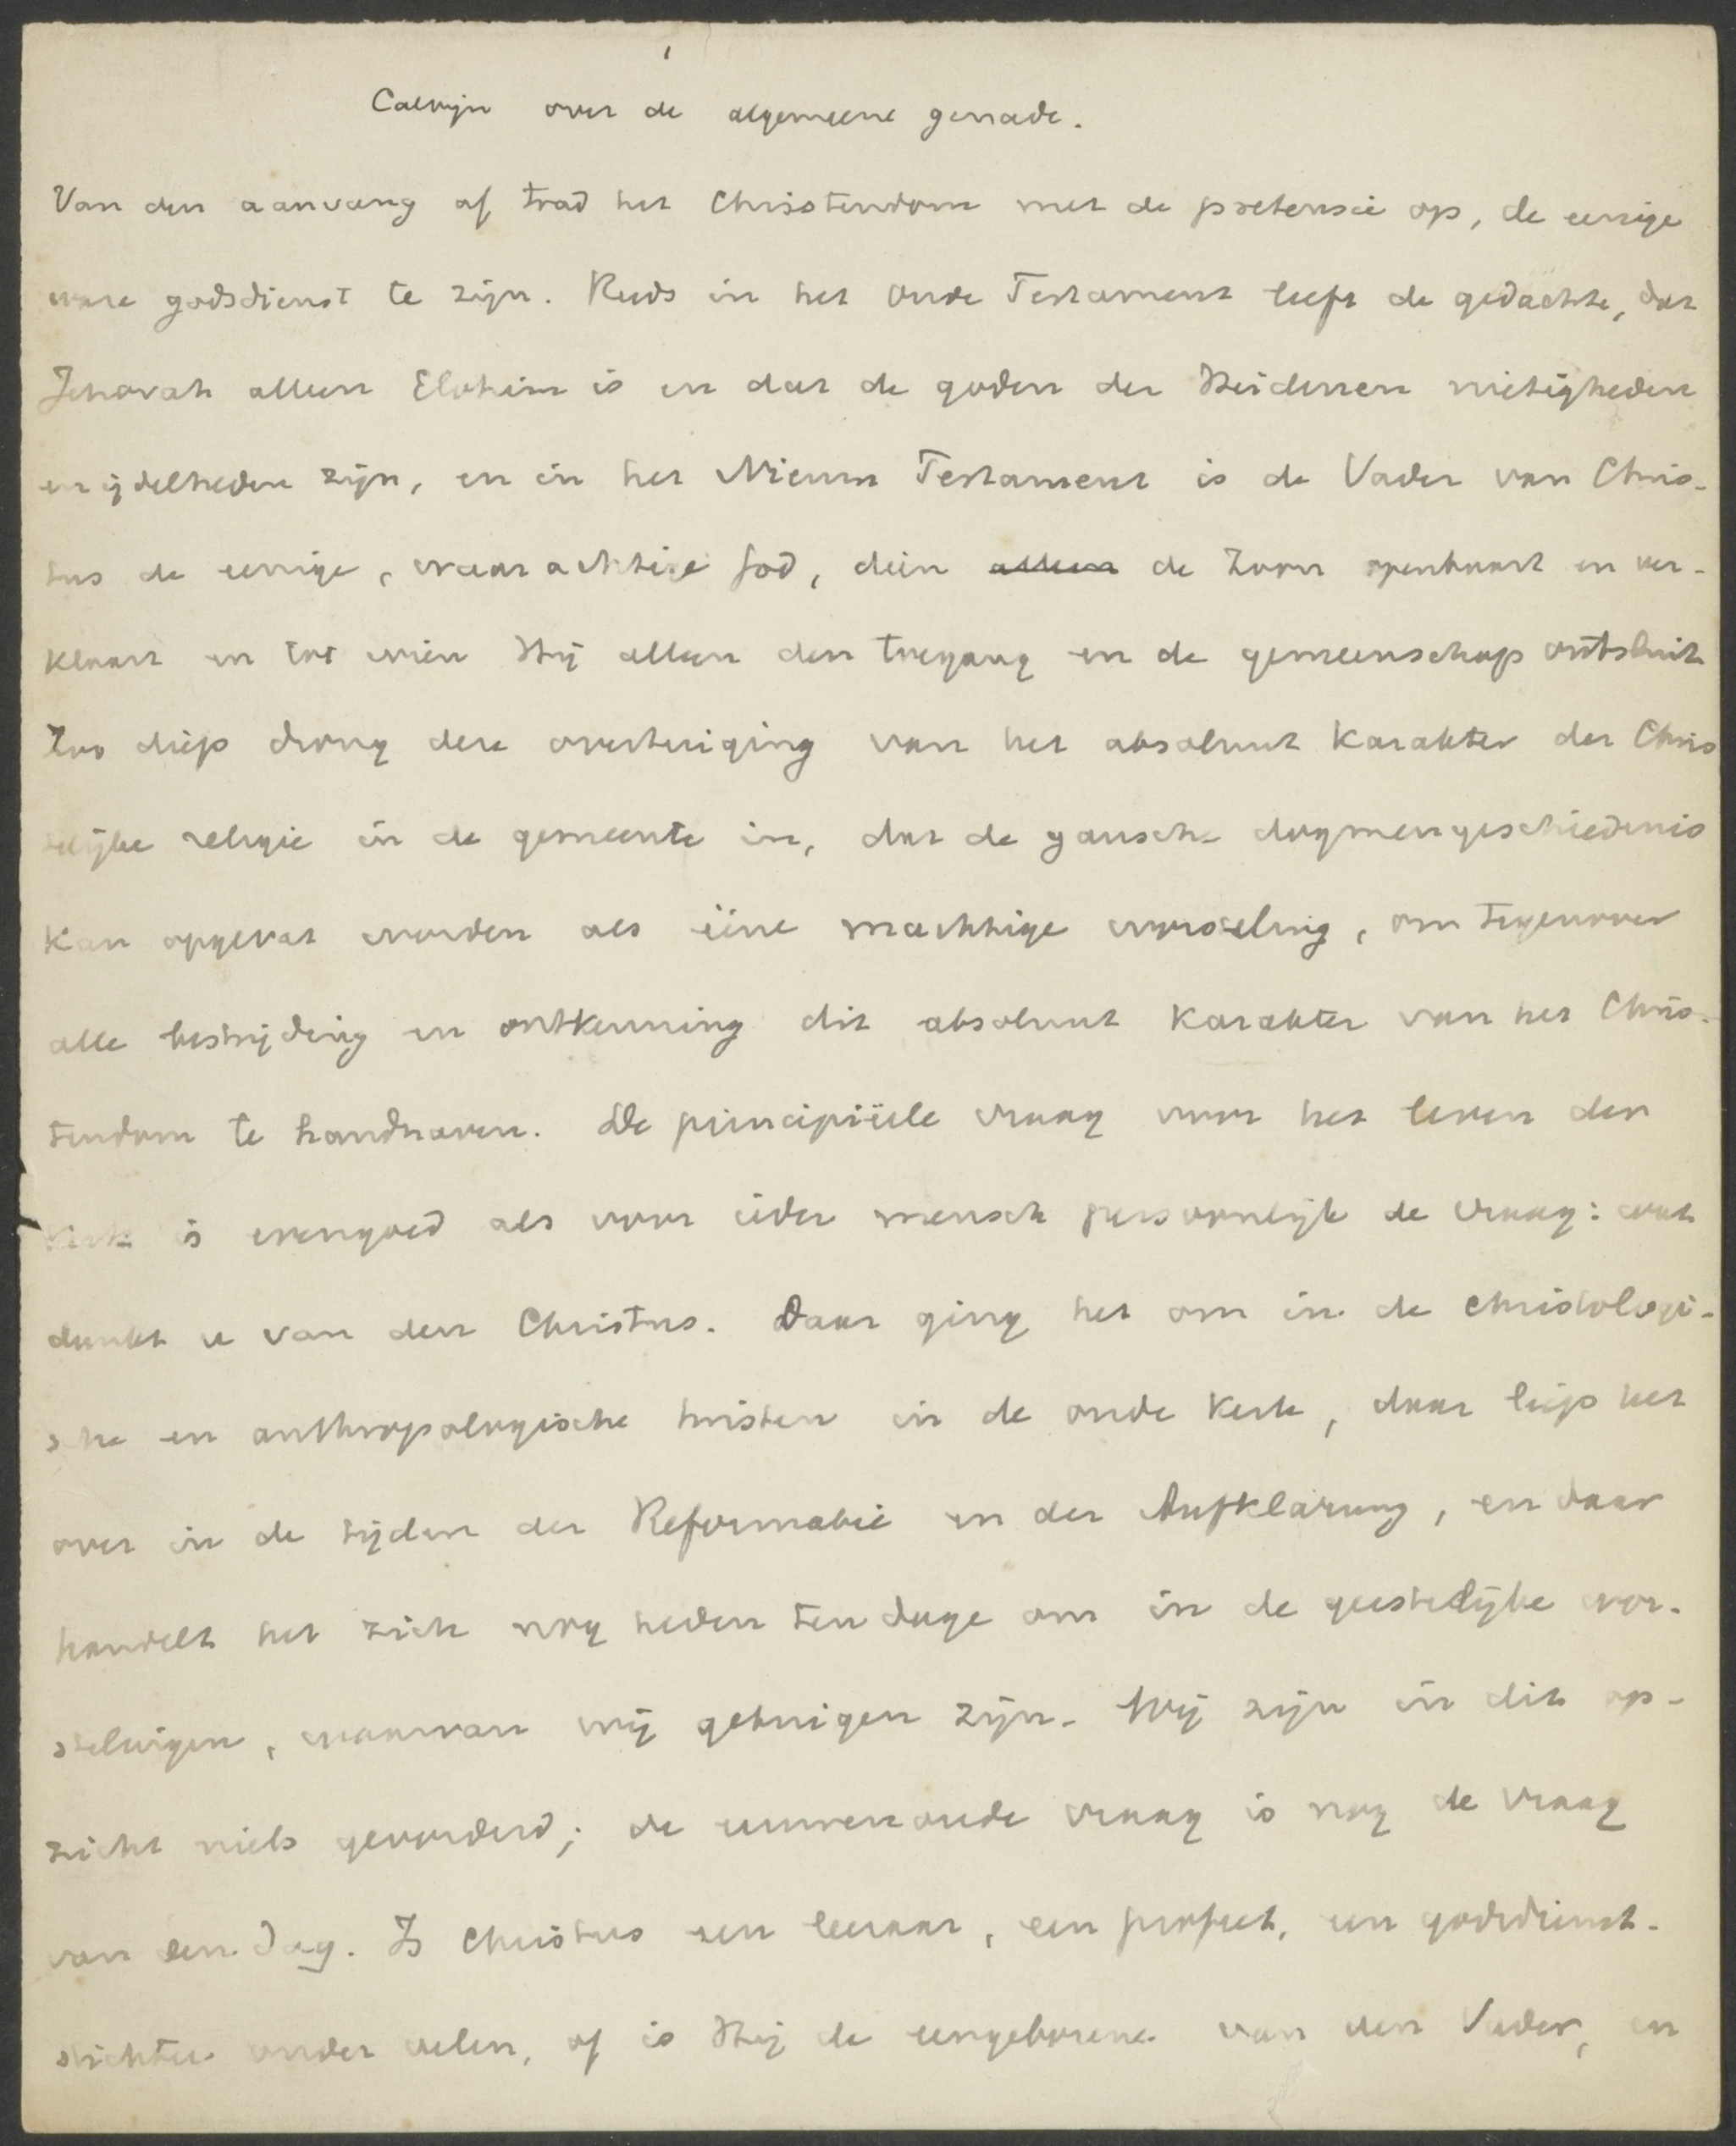 1
Calvijn over de algemeene genade.
Van den aanvang af trad het Christendom met de pretensie op, de eenige
ware godsdienst te zijn. Reeds in het Oude Testament leeft de gedachte, dat
Jehovah alleen Elohim is en dat de goden der Heidenen nietigheden
en ijdelheden zijn, en in het Nieuwe Testament is de Vader van Chris-
tus de eenige, waarachtige God, dien alleen de Zoon openbaart en ver-
klaart en tot wien Hij alleen den toegang en de gemeenschap ontsluit
Zoo diep drong deze overtuiging van het absoluut karakter der Chris
telijke religie in de gemeente in, dat de gansche dogmengeschiedenis
kan opgevat worden als ééne machtige worsteling, om tegenover
alle bestrijding en ontkenning dit absoluut karakter van het Chris-
tendom te handhaven. De principiëele vraag voor het leven der
Kerk is evengoed als voor ieder mensch persoonlijk de vraag: wat
dunkt u van den Christus. Daar ging het om in de christologi-
sche en anthropologische twisten in de oude Kerk, daar liep het
over in de tijden der Reformatie en der Aufklärung, en daar
handelt het zich nog heden ten dage om in de geestelijke wor-
stelingen, waarvan wij getuigen zijn. Wij zijn in dit op-
zicht niets gevorderd; de eeuwenoude vraag is nog de vraag
van den dag. Is Christus een leeraar, een profeet, een godsdienst-
stichter onder velen, of is Hij de eengeborene van den Vader, en